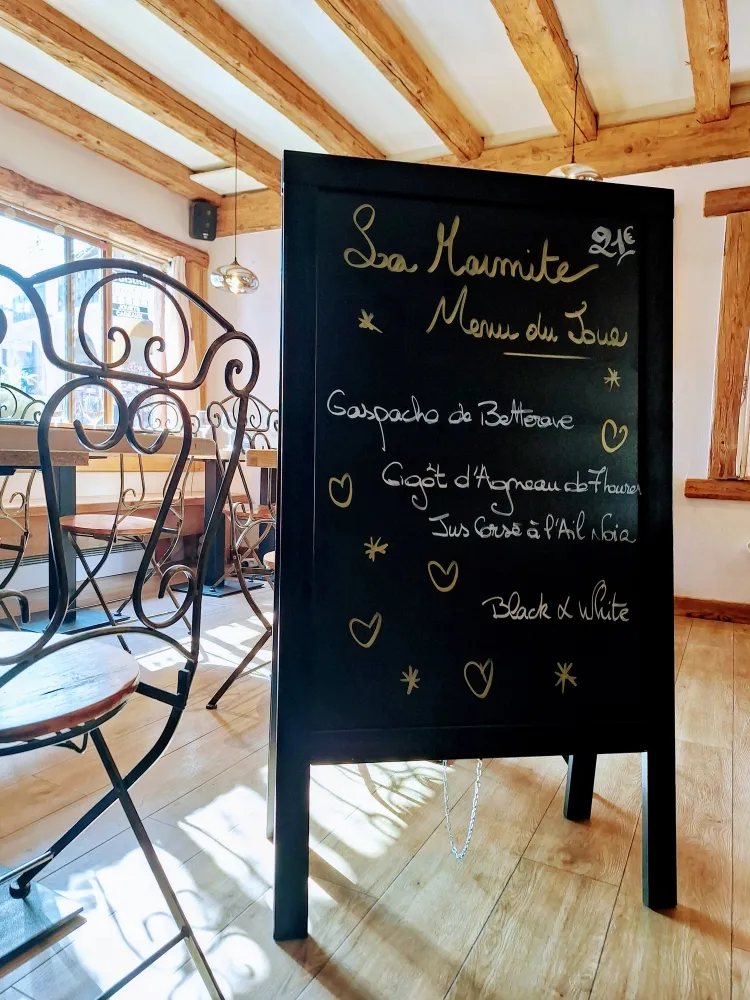 La Marmite
21€
Menu du Jour
Gaspacho de Betterave
Gigôt d'Agneau de 7 heures
Jus Corsé à l'Ail Noir
Black & White